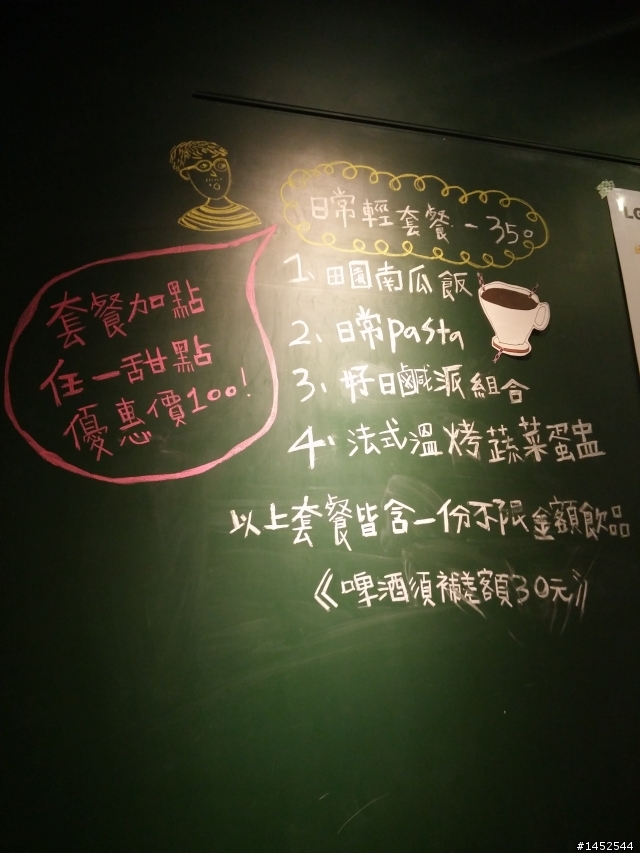 日常輕套餐-350
1、田園南瓜飯
2、日常pasta
3、好日鹹派組合
4、法式溫烤蔬菜蛋盅
以上套餐皆含一份不限金額飲品
《啤酒須補差額30元》
套餐加點
任一甜點
優惠價100!
#1452544